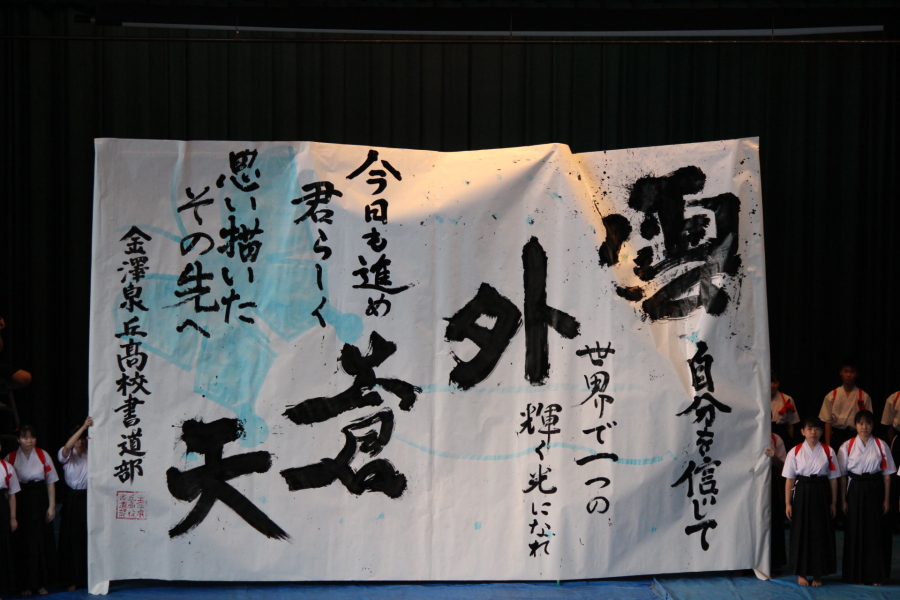 雲外蒼天
自分を信じて
世界で一つの
輝く光になれ
今日も進め
君らしく
思い描いた
その先へ
金澤泉丘高校書道部